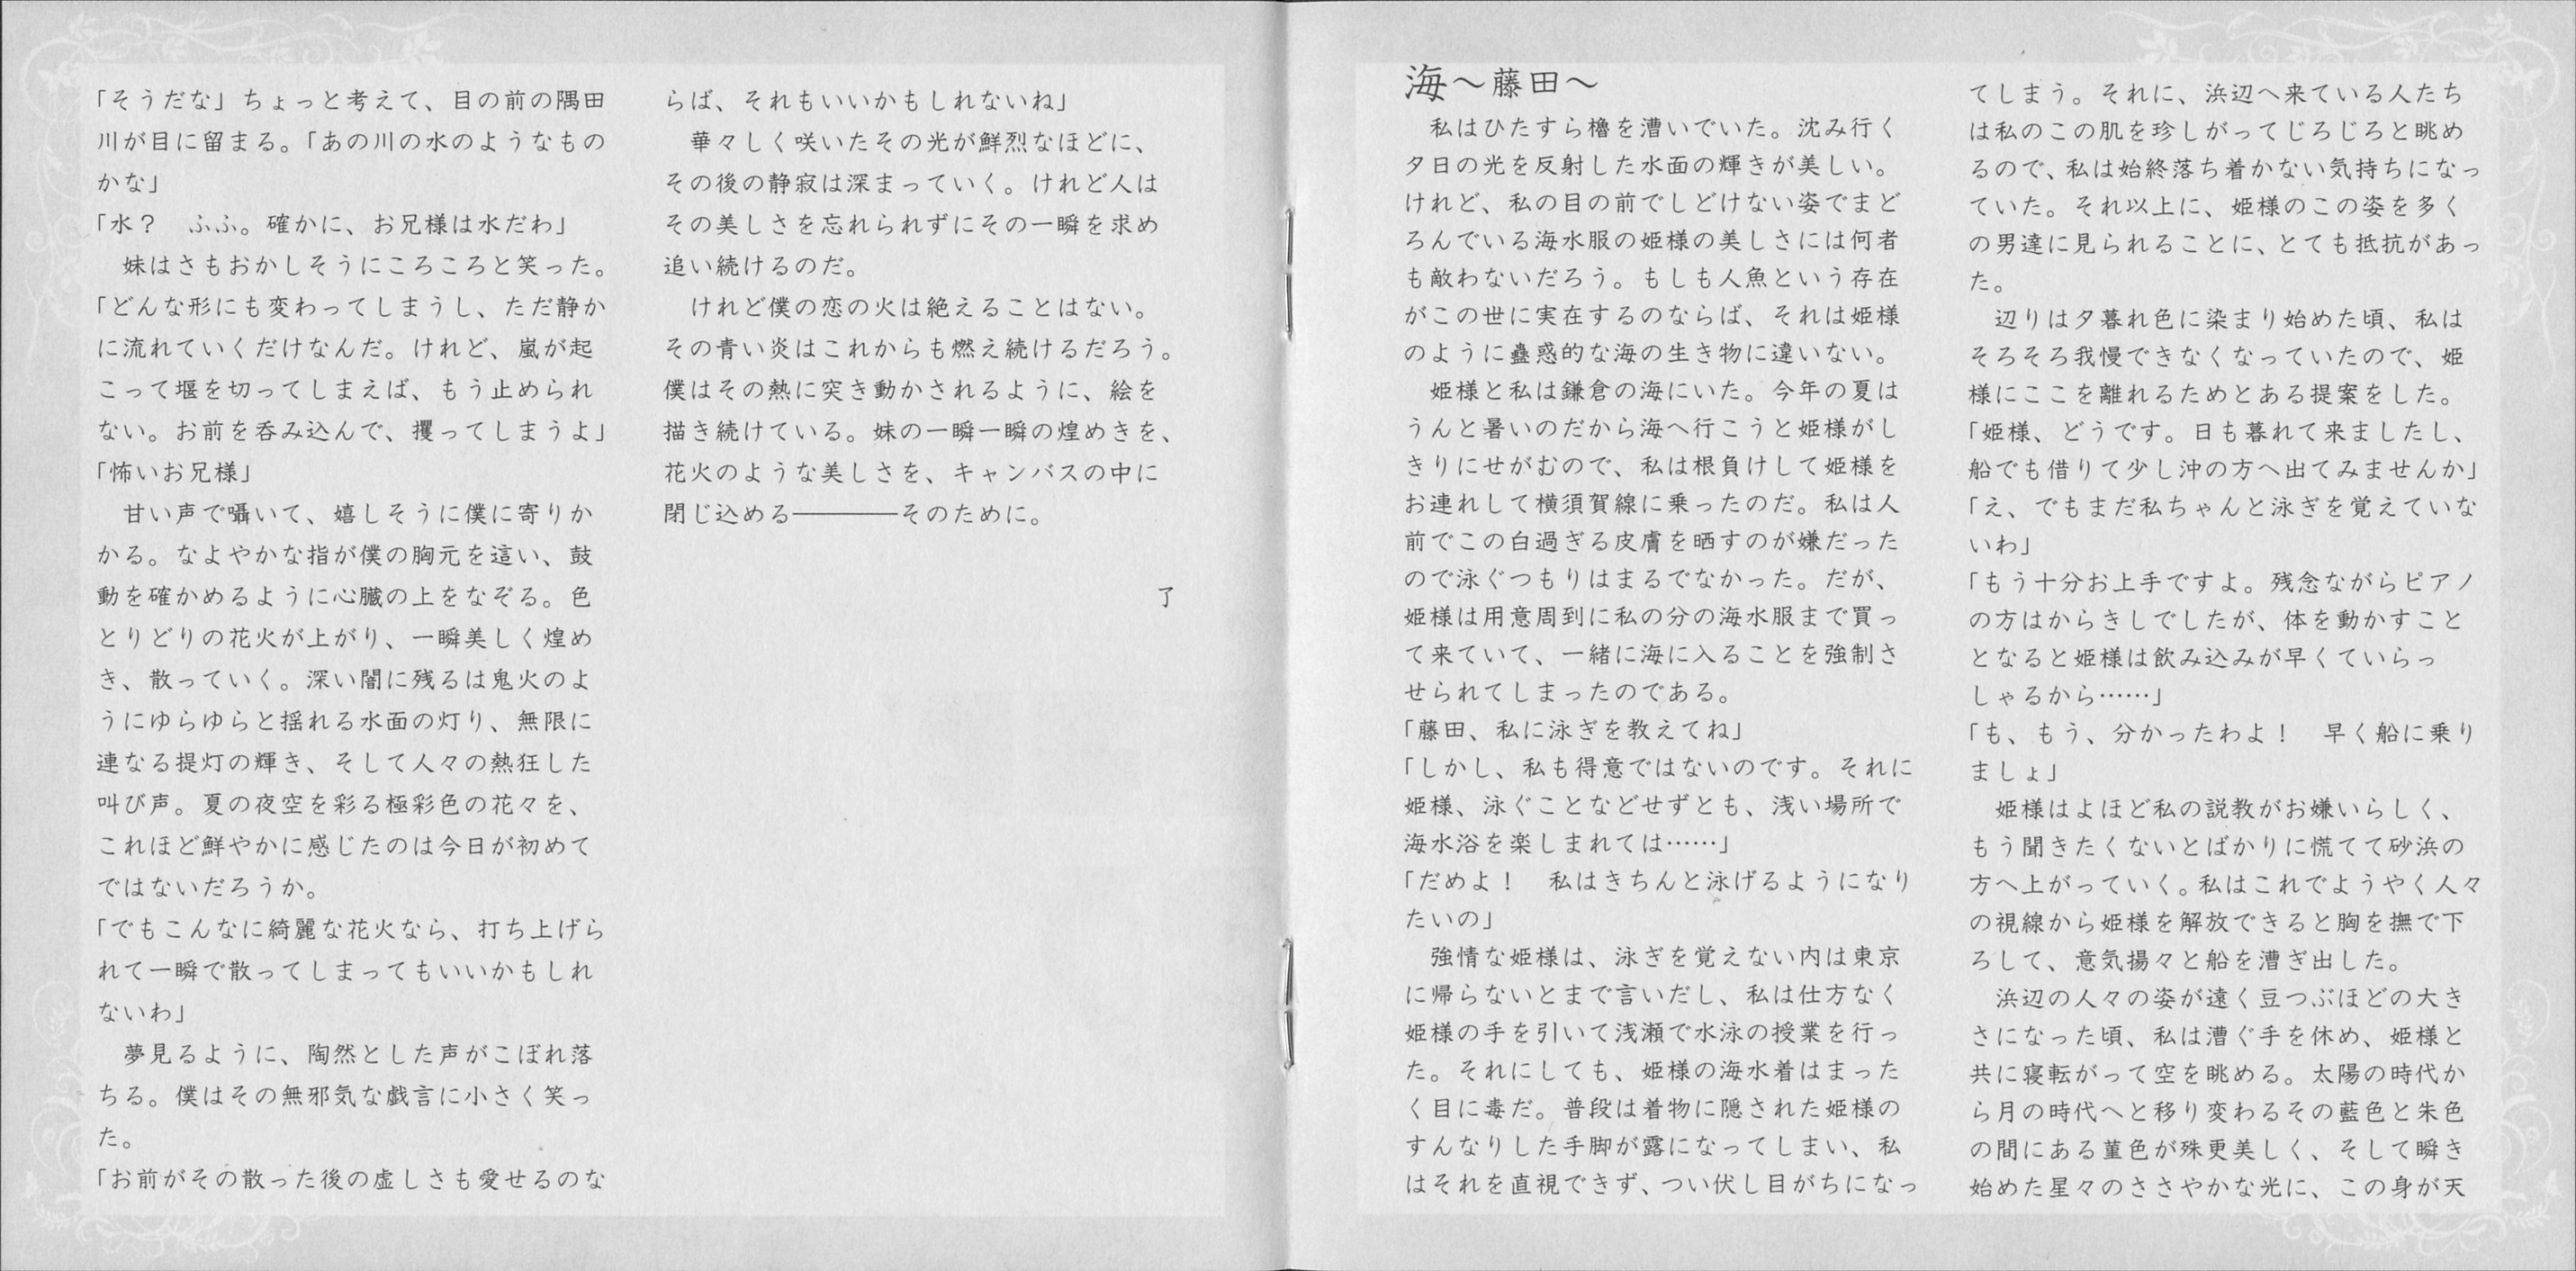 「そうだな」ちょっと考えて、目の前の隅田
川が目に留まる。「あの川の水のようなもの
かな」
「水？　ふふ。確かに、お兄様は水だわ」
　妹はさもおかしそうにころころと笑った。
「どんな形にも変わってしまうし、ただ静か
に流れていくだけなんだ。けれど、嵐が起
こって堰を切ってしまえば、もう止められ
ない。お前を呑み込んで、攫ってしまうよ」
「怖いお兄様」
　甘い声で囁いて、嬉しそうに僕に寄りか
かる。なよやかな指が僕の胸元を這い、鼓
動を確かめるように心臓の上をなぞる。色
とりどりの花火が上がり、一瞬美しく煌め
き、散っていく。深い闇に残るは鬼火のよ
うにゆらゆらと揺れる水面の灯り、無限に
連なる提灯の輝き、そして人々の熱狂した
叫び声。夏の夜空を彩る極彩色の花々を、
これほど鮮やかに感じたのは今日が初めて
ではないだろうか。
「でもこんなに綺麗な花火なら、打ち上げら
れて一瞬で散ってしまってもいいかもしれ
ないわ」
　夢見るように、陶然とした声がこぼれ落
ちる。僕はその無邪気な戯言に小さく笑っ
た。
「お前がその散った後の虚しさも愛せるのな
らば、それもいいかもしれないね」
　華々しく咲いたその光が鮮烈なほどに、
その後の静寂は深まっていく。けれど人は
その美しさを忘れられずにその一瞬を求め
追い続けるのだ。
　けれど僕の恋の火は絶えることはない。
その青い炎はこれからも燃え続けるだろう。
僕はその熱に突き動かされるように、絵を
描き続けている。妹の一瞬一瞬の煌めきを、
花火のような美しさを、キャンバスの中に
閉じ込める――――そのために。
了
海～藤田～
　私はひたすら櫓を漕いでいた。沈み行く
夕日の光を反射した水面の輝きが美しい。
けれど、私の目の前でしどけない姿でまど
ろんでいる海水服の姫様の美しさには何者
も敵わないだろう。もしも人魚という存在
がこの世に実在するのならば、それは姫様
のように蠱惑的な海の生き物に違いない。
　姫様と私は鎌倉の海にいた。今年の夏は
うんと暑いのだから海へ行こうと姫様がし
きりにせがむので、私は根負けして姫様を
お連れして横須賀線に乗ったのだ。私は人
前でこの白過ぎる皮膚を晒すのが嫌だった
ので泳ぐつもりはまるでなかった。だが、
姫様は用意周到に私の分の海水服まで買っ
て来ていて、一緒に海に入ることを強制さ
せられてしまったのである。
「藤田、私に泳ぎを教えてね」
「しかし、私も得意ではないのです。それに
姫様、泳ぐことなどせずとも、浅い場所で
海水浴を楽しまれては……」
「だめよ！　私はきちんと泳げるようになり
たいの」
　強情な姫様は、泳ぎを覚えない内は東京
に帰らないとまで言いだし、私は仕方なく
姫様の手を引いて浅瀬で水泳の授業を行っ
た。それにしても、姫様の海水着はまった
く目に毒だ。普段は着物に隠された姫様の
すんなりした手脚が露になってしまい、私
はそれを直視できず、つい伏し目がちになっ
てしまう。それに、浜辺へ来ている人たち
は私のこの肌を珍しがってじろじろと眺め
るので、私は始終落ち着かない気持ちになっ
ていた。それ以上に、姫様のこの姿を多く
の男達に見られることに、とても抵抗があっ
た。
　辺りは夕暮れ色に染まり始めた頃、私は
そろそろ我慢できなくなっていたので、姫
様にここを離れるためとある提案をした。
「姫様、どうです。日も暮れて来ましたし、
船でも借りて少し沖の方へ出てみませんか」
「え、でもまだ私ちゃんと泳ぎを覚えていな
いわ」
「もう十分お上手ですよ。残念ながらピアノ
の方はからきしでしたが、体を動かすこと
となると姫様は飲み込みが早くていらっ
しゃるから……」
「も、もう、分かったわよ！　早く船に乗り
ましょ」
　姫様はよほど私の説教がお嫌いらしく、
もう聞きたくないとばかりに慌てて砂浜の
方へ上がっていく。私はこれでようやく人々
の視線から姫様を解放できると胸を撫で下
ろして、意気揚々と船を漕ぎ出した。
　浜辺の人々の姿が遠く豆つぶほどの大き
さになった頃、私は漕ぐ手を休め、姫様と
共に寝転がって空を眺める。太陽の時代か
ら月の時代へと移り変わるその藍色と朱色
の間にある菫色が殊更美しく、そして瞬き
始めた星々のささやかな光に、この身が天